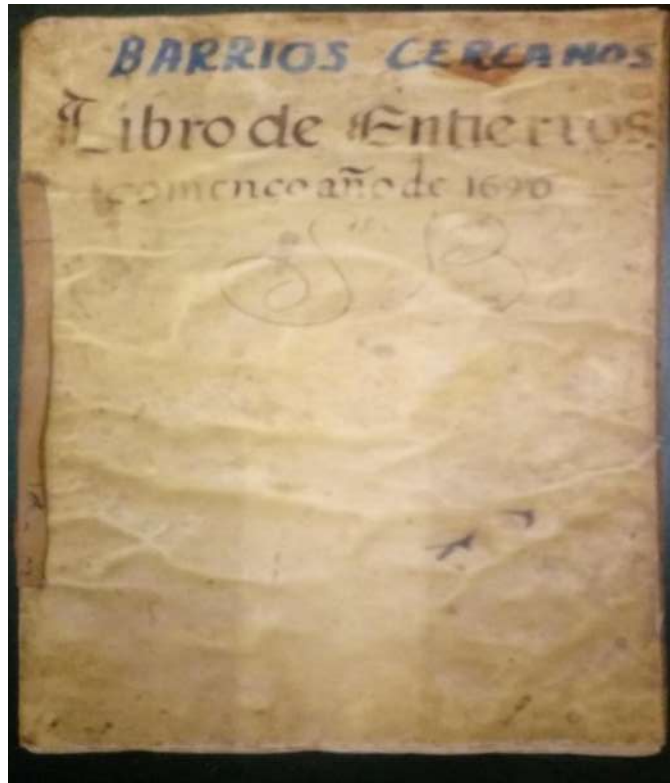 BARRIOS CERCANOS
Libro de Entierros
comenco año de 1690